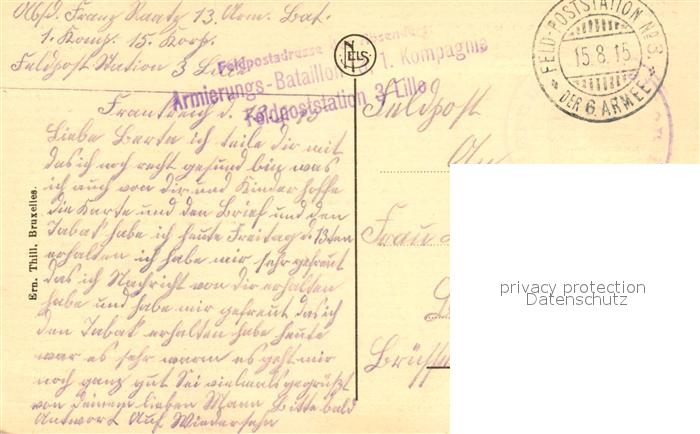 Abs. Franz Raatz 13. Arm. Bat.
1. Komp. 15. Korp.
Feldpost Station 3 Lille
Feldpostadresse
Armierungs-Bataillon 1. Kompagnie
Feldpoststation 3, Lille
NELS
FELD-POSTSTATION No 3.
15.8.15
DER 6. ARMEE
Frankreich d.
Liebe Berta ich teile dir mit
das ich noch recht gesund bin was
ich auch von dir und Kinder hoffe
die Karte und den Brief und den
Tabak habe ich heute Freitag d. 13ten
erhalten ich habe mir sehr gefreut
das ich Nachricht von dir erhalten
habe und habe mir gefreut das ich
den Tabak erhalten habe heute
war es sehr warm es geht mir
noch ganz gut Sei vielmals gegrüßt
von deinem lieben Mann Bitte bald
Antwort Auf Wiedersehn
Ern. Thill, Bruxelles.
Feldpost
An
Frau
privacy protection
Datenschutz